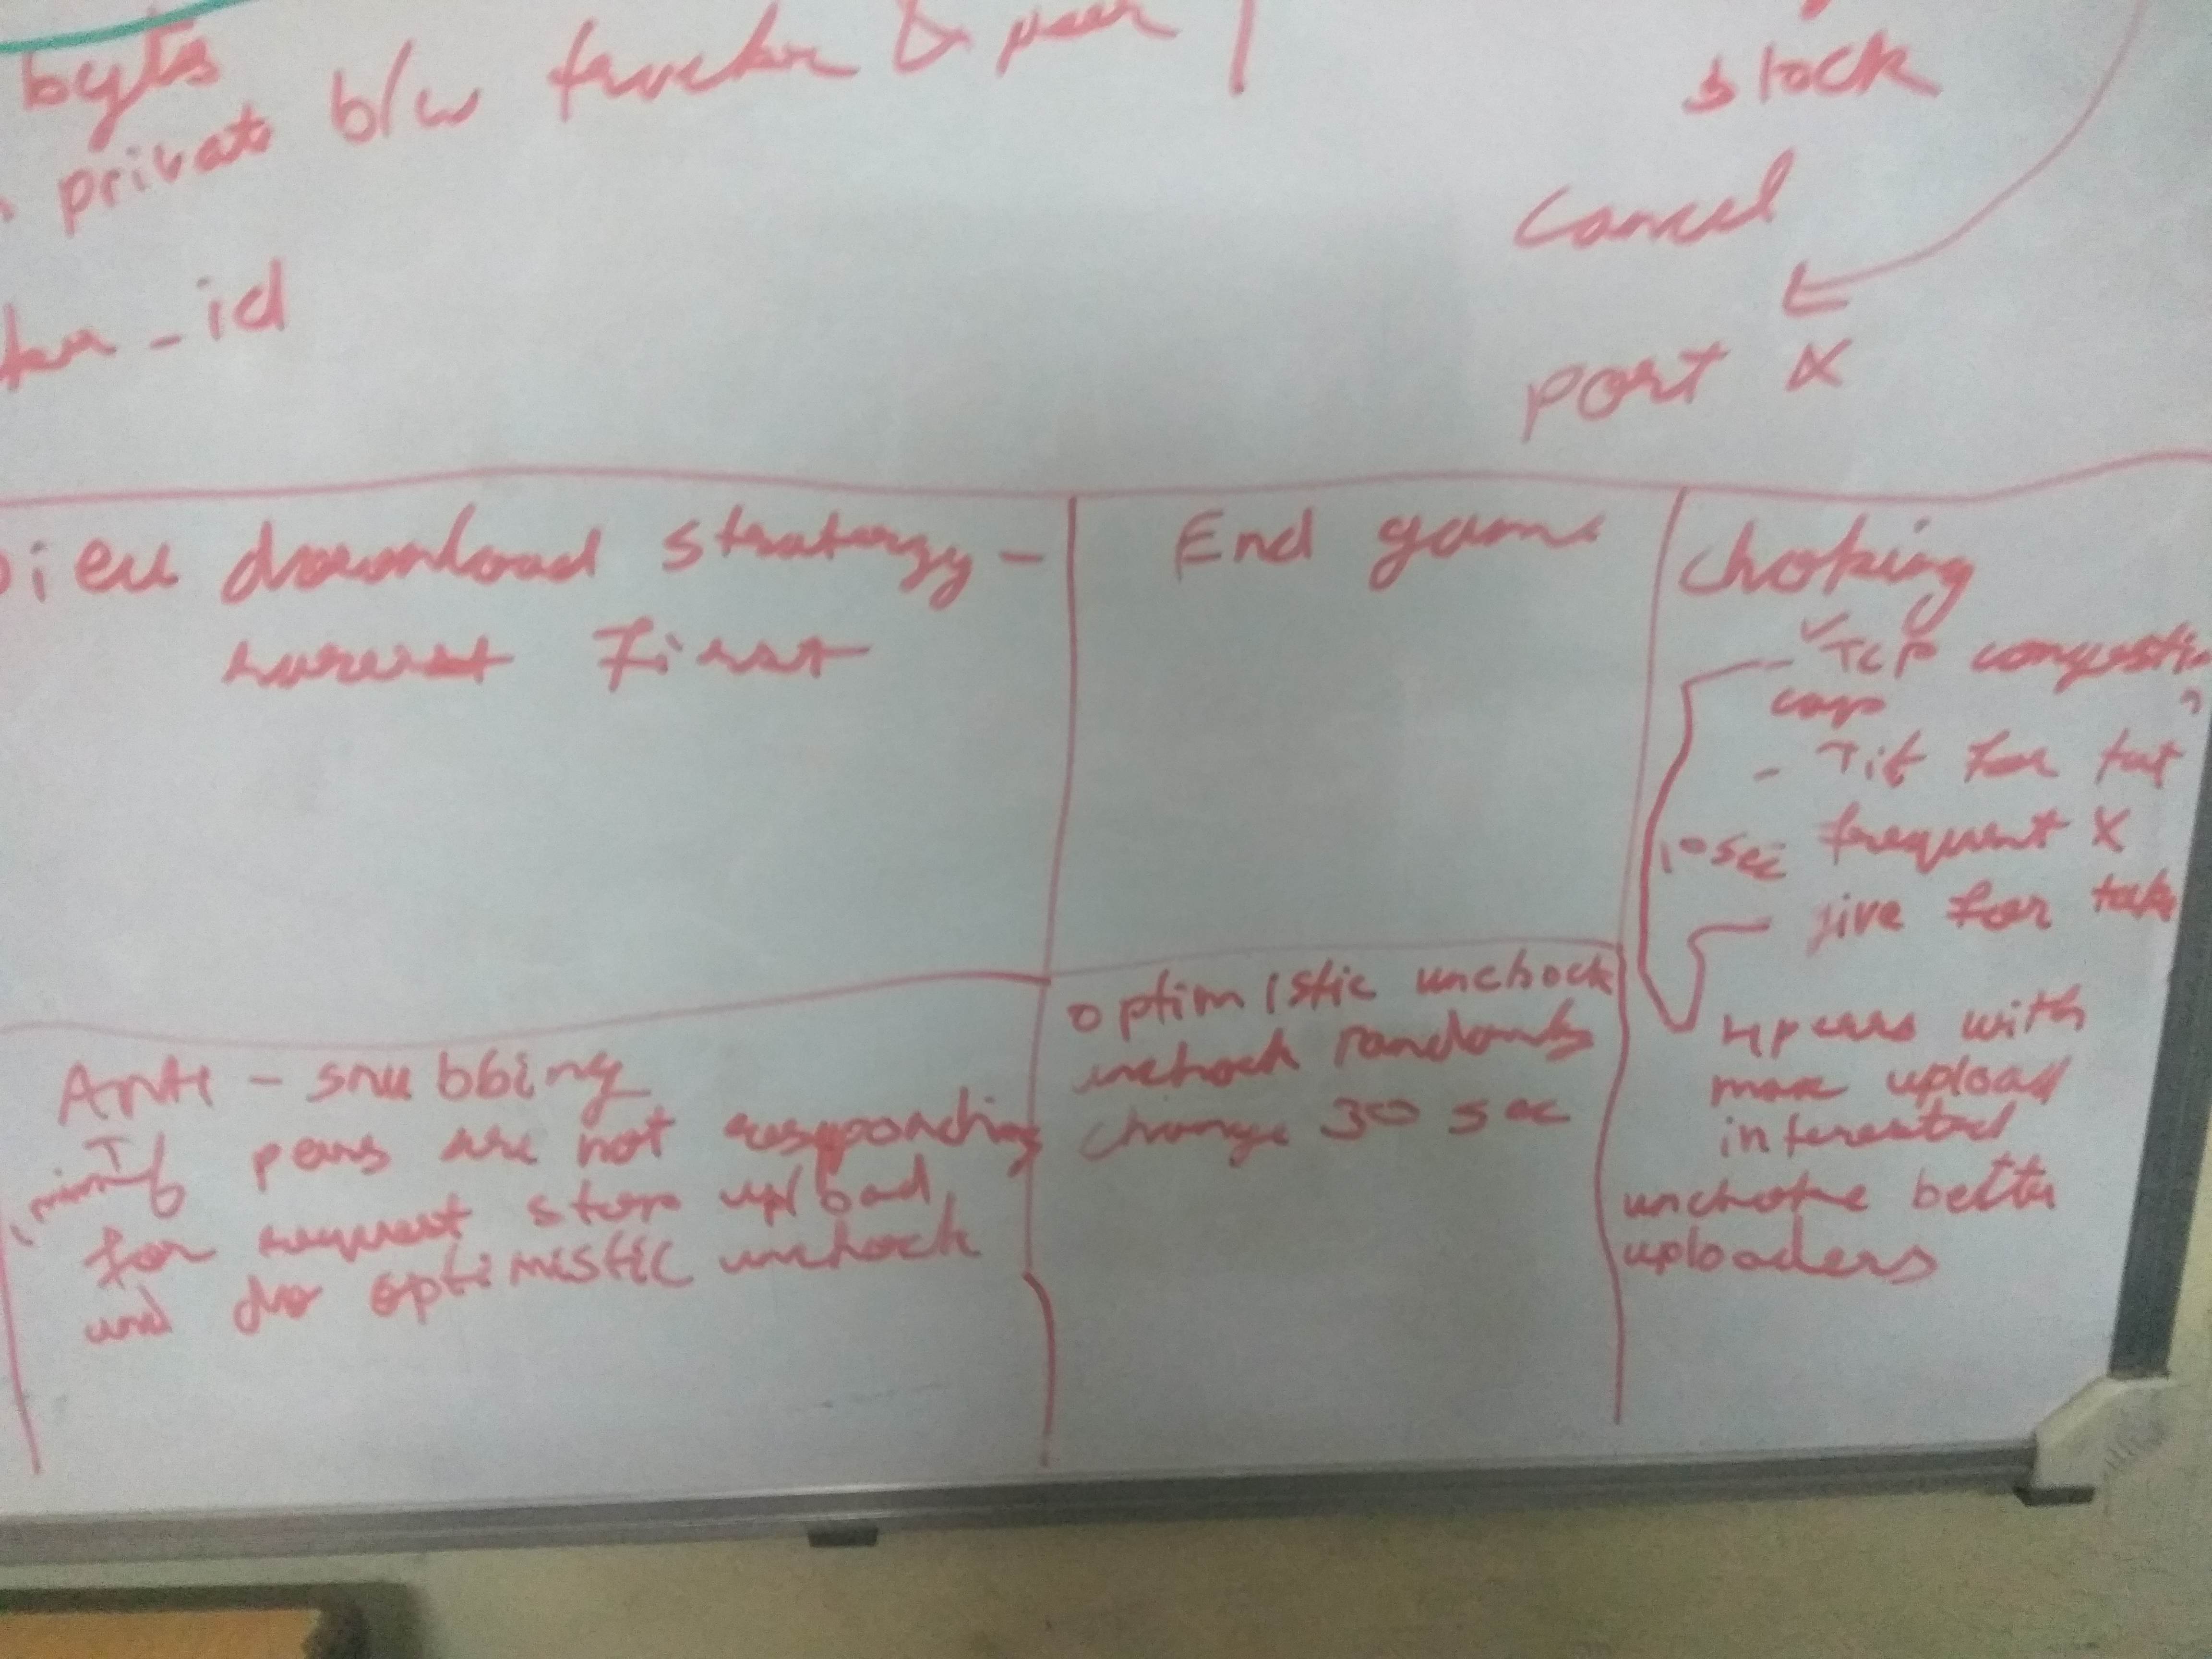 bytes
private b/w tracker & peer
ker_id
block
cancel
port X
piece download strategy -
rarest First
End game
choking
- TCP congestion
cap
- Tit for tat
10 sec frequent X
give for take
4 peers with
max upload
interested
unchoke better
uploaders
optimistic unchock
unchock randomly
change 30 sec
Anti - snubbing
If peers are not responding
1 min
for request stop upload
and do optimistic unchock